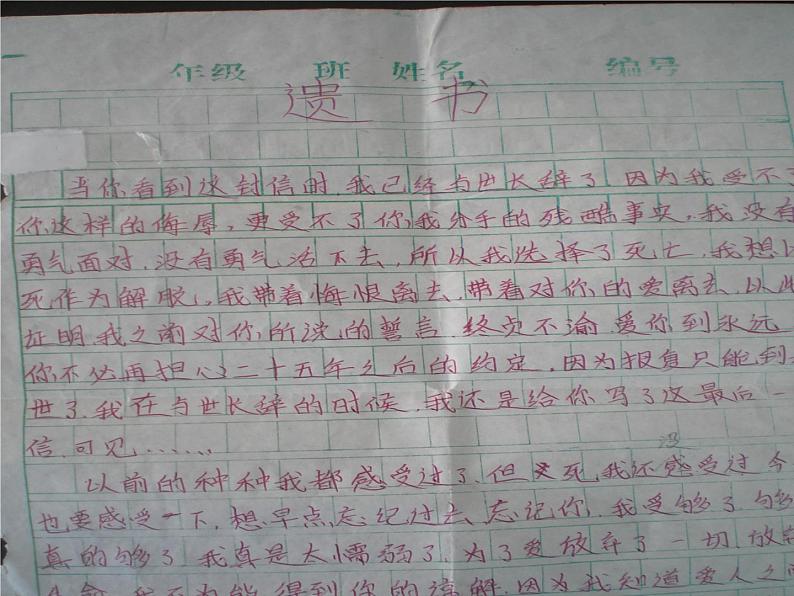 年级 班 姓名 编号
遗书
当你看到这封信时,我已经与世长辞了.因为我受不了
你这样的侮辱,更受不了你我分手的残酷事实,我没有
勇气面对.没有勇气活下去,所以我选择了死亡,我想以
死作为解脱,我带着悔恨离去.带着对你的爱离去.以此
证明.我之前对你所说的誓言.终贞不渝.爱你到永远
你不必再担心二十五年之后的约定,因为报负只能到
世了.我在与世长辞的时候.我还是给你写了这最后一
信.可见……
以前的种种我都感受过了.但死,我还没感受过今
也要感受一下,想早点忘纪过去,忘记你,我受够了.够
真的够了.我真是太懦弱了.为了爱放弃了一切.放弃
我不为能得到你的谅解.因为我知道爱人之